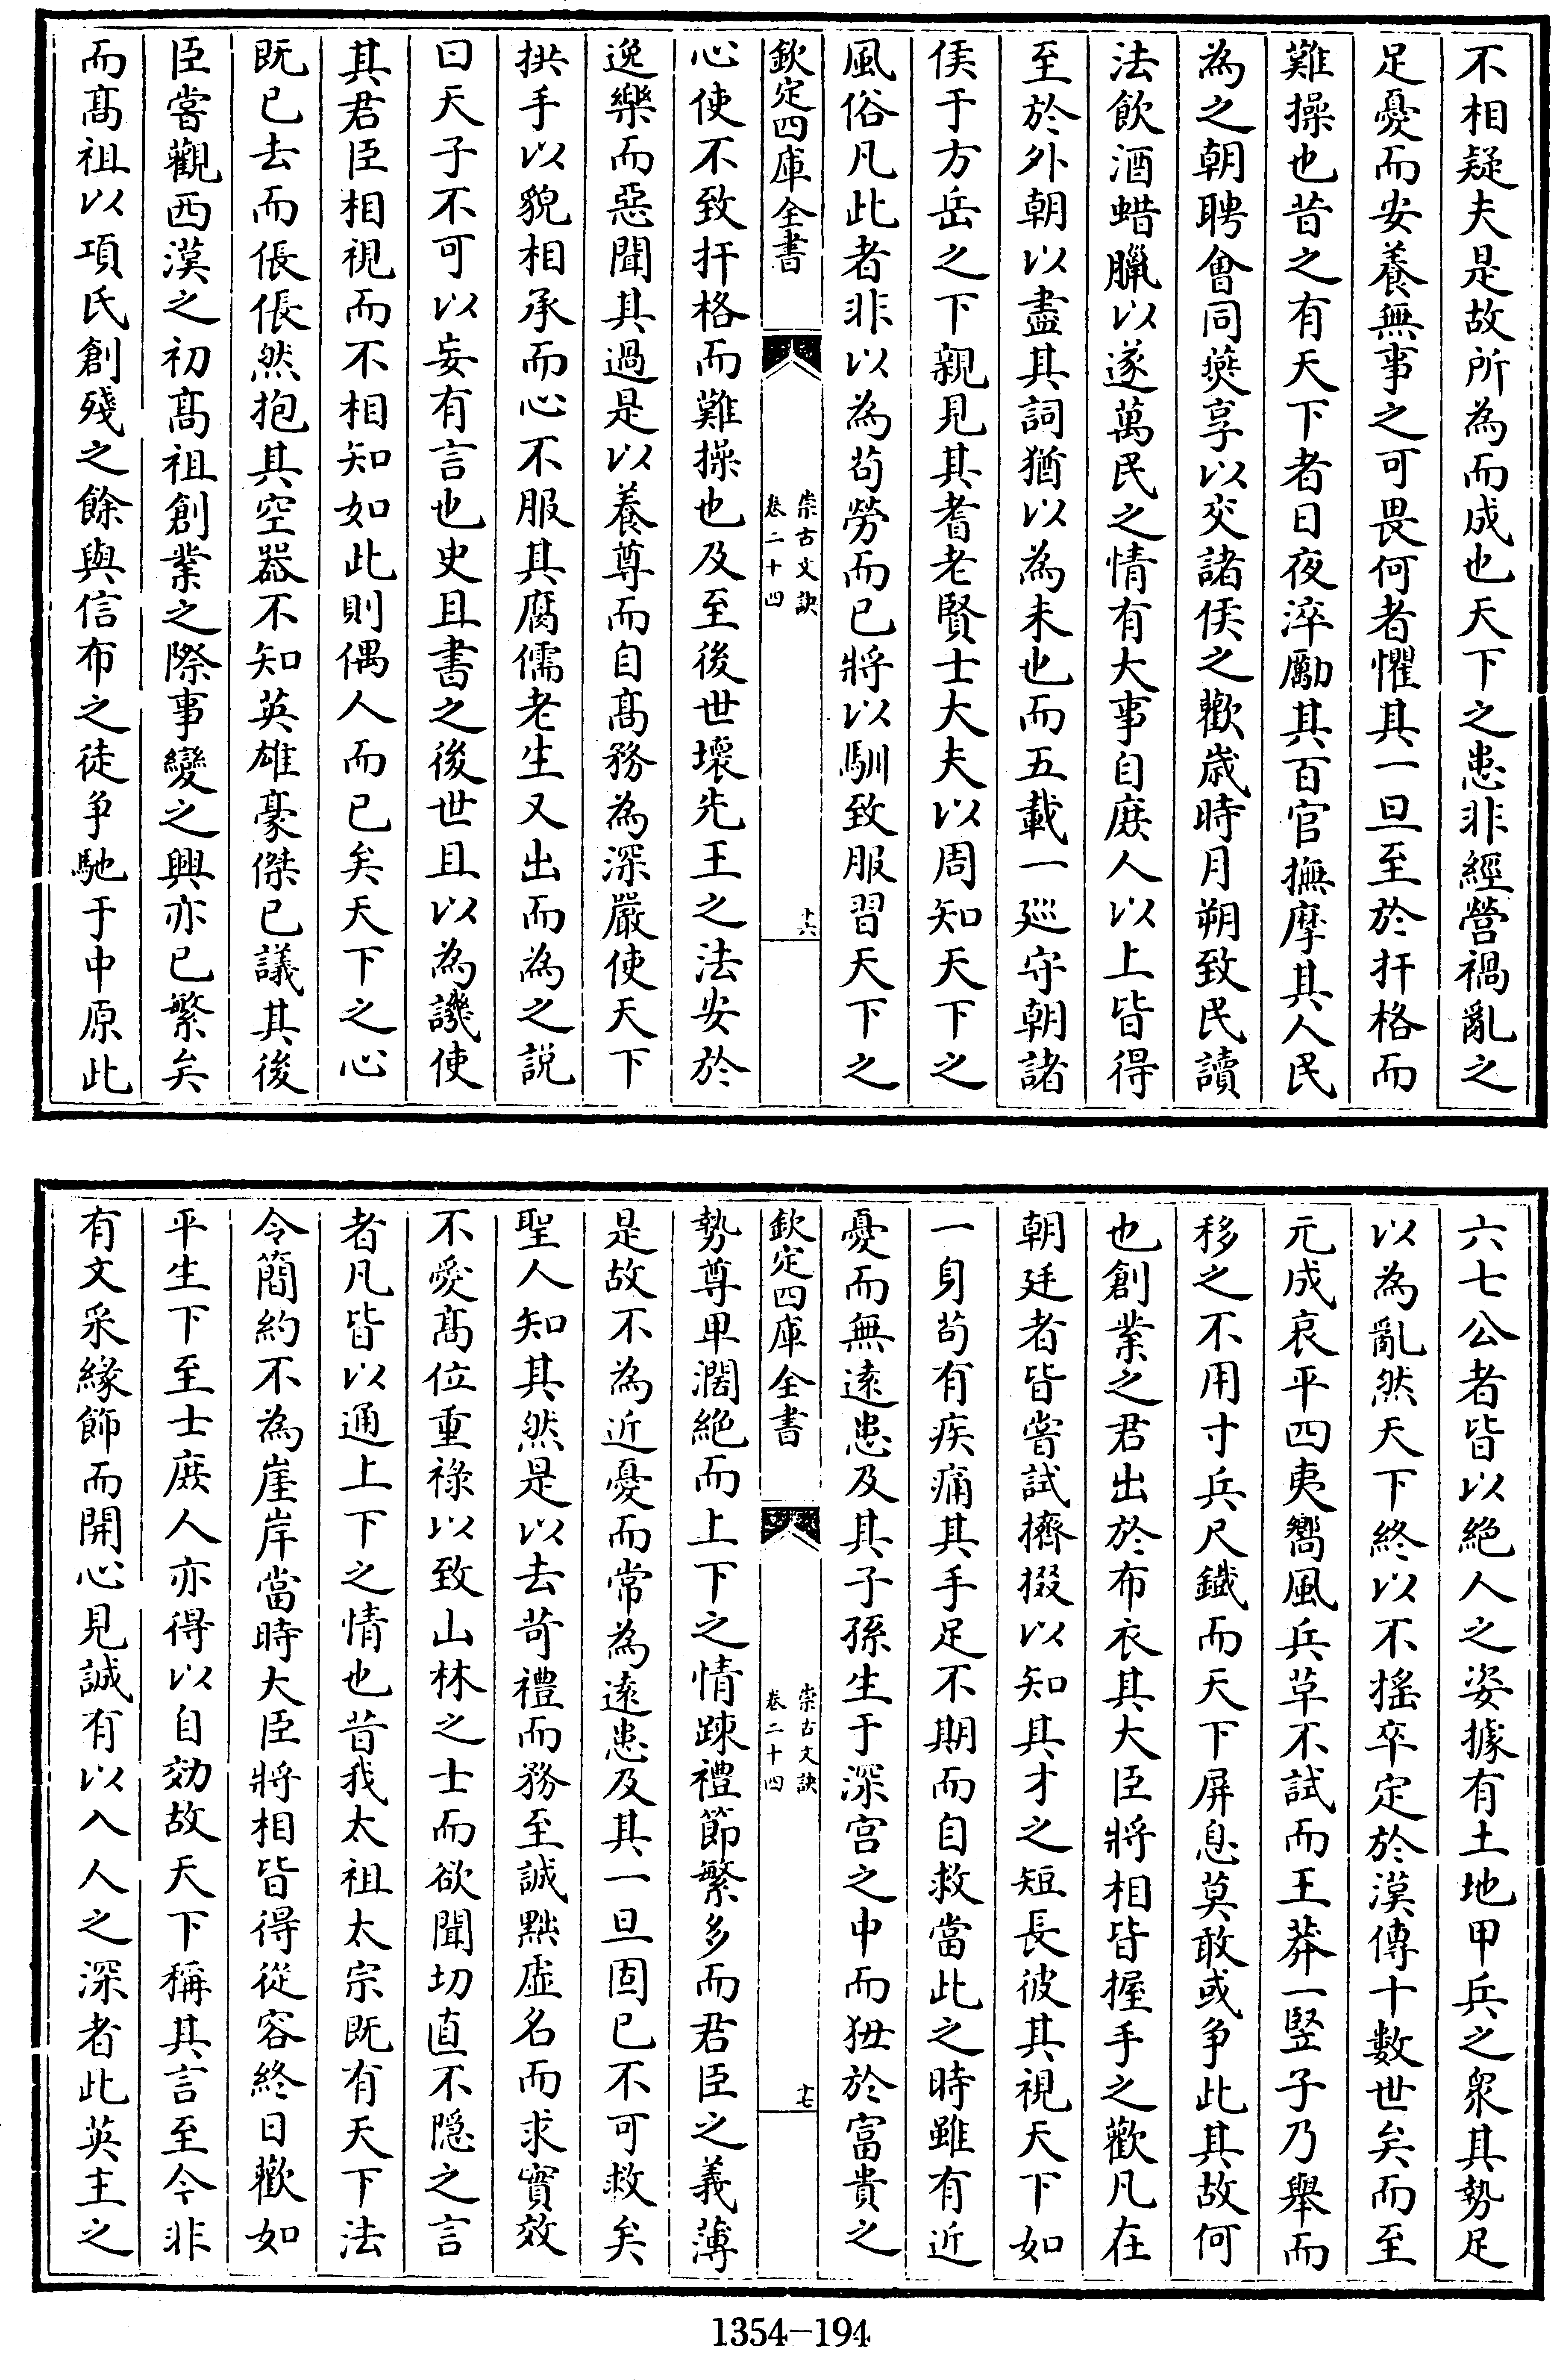 不相疑夫是故所為而成也天下之患非經營禍亂之
足憂而安養無事之可畏何者懼其一旦至於扞格而
難操也昔之有天下者日夜淬勵其百官撫摩其人民
為之朝聘會同燕享以交諸侯之歡歲時月朔致民讀
法飲酒蜡臘以遂萬民之情有大事自庶人以上皆得
至於外朝以盡其詞猶以為未也而五載一巡守朝諸
侯于方岳之下親見其耆老賢士大夫以周知天下之
風俗凡此者非以為茍勞而已將以馴致服習天下之
欽定四庫全書
崇古文訣
卷二十四
十六
心使不致扞格而難操也及至後世壞先王之法安於
逸樂而惡聞其過是以養尊而自髙務為深嚴使天下
拱手以貌相承而心不服其腐儒老生又出而為之說
曰天子不可以妄有言也史且書之後世且以為譏使
其君臣相視而不相知如此則偶人而已矣天下之心
既已去而倀倀然抱其空器不知英雄豪傑已議其後
臣嘗觀西漢之初髙祖創業之際事變之興亦已繁矣
而髙祖以項氏創殘之餘與信布之徒爭馳于中原此
六七公者皆以絕人之姿據有土地甲兵之衆其勢足
以為亂然天下終以不搖卒定於漢傳十數世矣而至
元成哀平四夷嚮風兵革不試而王莽一豎子乃舉而
移之不用寸兵尺鐵而天下屏息莫敢或爭此其故何
也創業之君出於布衣其大臣將相皆握手之歡凡在
朝廷者皆嘗試擠掇以知其才之短長彼其視天下如
一身茍有疾痛其手足不期而自救當此之時雖有近
憂而無遠患及其子孫生于深宫之中而狃於富貴之
欽定四庫全書
崇古文訣
卷二十四
十七
勢尊卑濶絕而上下之情踈禮節繁多而君臣之義薄
是故不為近憂而常為遠患及其一旦固已不可救矣
聖人知其然是以去苛禮而務至誠黜虛名而求實效
不愛髙位重祿以致山林之士而欲聞切直不隱之言
者凡皆以通上下之情也昔我太祖太宗既有天下法
令簡約不為崖岸當時大臣將相皆得從容終日歡如
平生下至士庶人亦得以自効故天下稱其言至今非
有文采緣飾而開心見誠有以入人之深者此英主之
1354-194